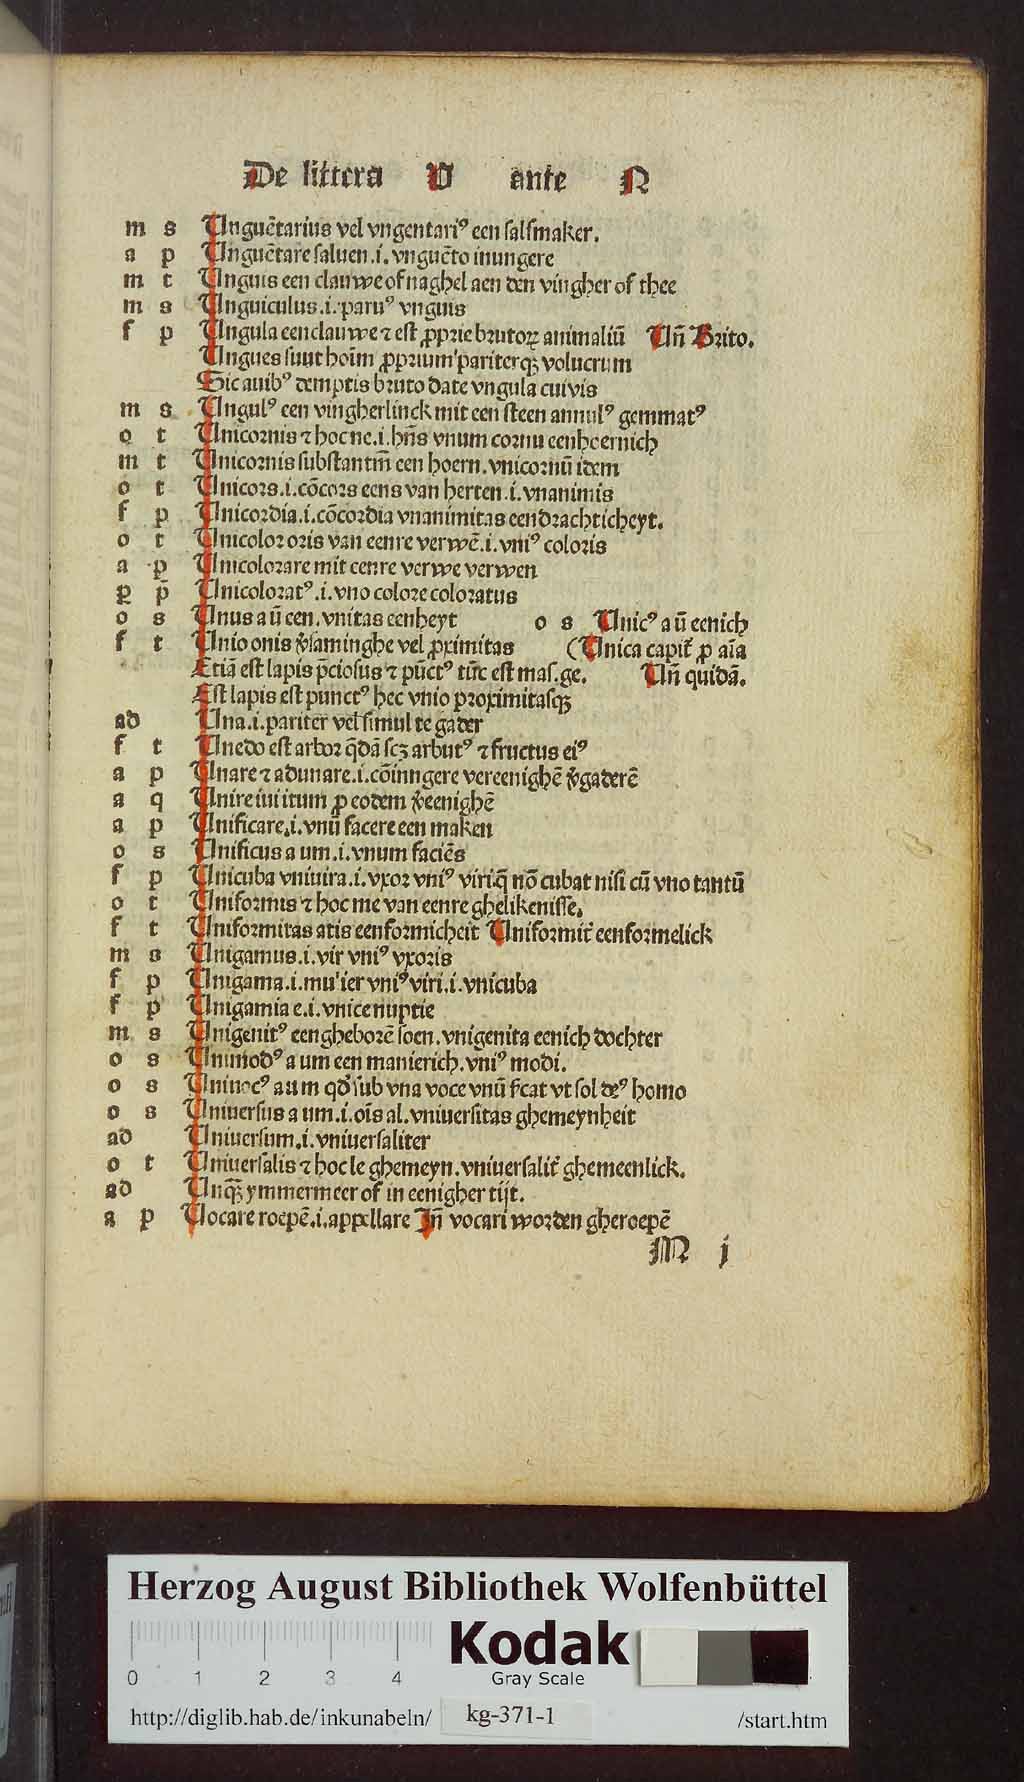 De littera U ante N
m s Unguētarius vel vngentariꝰ een salfmaker.
a p Unguētare saluen.i.vnguēto inungere
m t Unguis een clauwe of naghel aen den vingher of thee
m s Unguiculus.i.paruꝰ vnguis
f p Ungula een clauwe ⁊ est ꝓprie brutoꝝ animaliū Un̄ Brito.
Ungues suut hoīm ꝓprium pariterqꝫ volucrum
Sic auibꝰ demptis bruto date vngula cuivis
m s Ungulꝰ een vingherlinck mit een steen annulꝰ gemmatꝰ
o t Unicornis ⁊ hoc ne.i.hn̄s vnum cornu eenhoernich
m t Unicornis substantm̄ een hoern.vnicornū idem
o t Unicors.i.cōcors eens van herten.i.vnanimis
f p Unicordia.i.cōcordia vnanimitas eendrachticheyt.
o t Unicolor oris van eenre verwē.i.vniꝰ coloris
a p Unicolorare mit eenre verwe verwen
ꝑ p̄ Unicoloratꝰ.i.vno colore coloratus
o s Unus a ū een.vnitas eenheyt o s Unicꝰ a ū eenich
f t Unio onis v̄saminghe vel ꝓximitas (Unica capit̄ ꝓ aīa
Etiā est lapis p̄ciosus ⁊ pūctꝰ tūc est mas.ge. Un̄ quidā.
Est lapis est punctꝰ hec vnio proximitasqꝫ
ad Una.i.pariter vel simul te gader
f t Unedo est arbor q̄dā scꝫ arbutꝰ ⁊ fructus eiꝰ
a p Unare ⁊ adunare.i.cōinngere vereenighē v̄gaderē
a q Unire iui itum ꝓ eodem v̄eenighē
a p Unificare.i.vnū facere een maken
o s Unificus a um.i.vnum faciēs
f p Unicuba vniuira.i.vxor vniꝰ viri.q̄ nō cubat nisi cū vno tantū
o t Uniformis ⁊ hoc me van eenre ghelikenisse.
f t Uniformitas atis eenformicheit Uniformit̄ eenformelick
m s Unigamus.i.vir vniꝰ vxoris
f p Unigama.i.mu'ier vniꝰ viri.i.vnicuba
f p Unigamia e.i.vnice nuptie
m s Unigenitꝰ eengheborē soen.vnigenita eenich dochter
o s Unimodꝰ a um een manierich.vniꝰ modi.
o s Uniuocꝰ a um qd̄ sub vna voce vnū s̄cat vt sol deꝰ homo
o s Uniuersus a um.i.oīs al.vniuersitas ghemeynheit
ad Uniuersum.i.vniuersaliter
o t Uniuersalis ⁊ hoc le ghemeyn.vniuersalit̄ ghemeenlick.
ad Unqꝫ ymmermeer of in eenigher tijt.
a p Uocare roepē.i.appellare In̄ vocari worden gheroepē
M j
Herzog August Bibliothek Wolfenbüttel
0 1 2 3 4
Kodak
Gray Scale
http://diglib.hab.de/inkunabeln/ kg-371-1 /start.htm